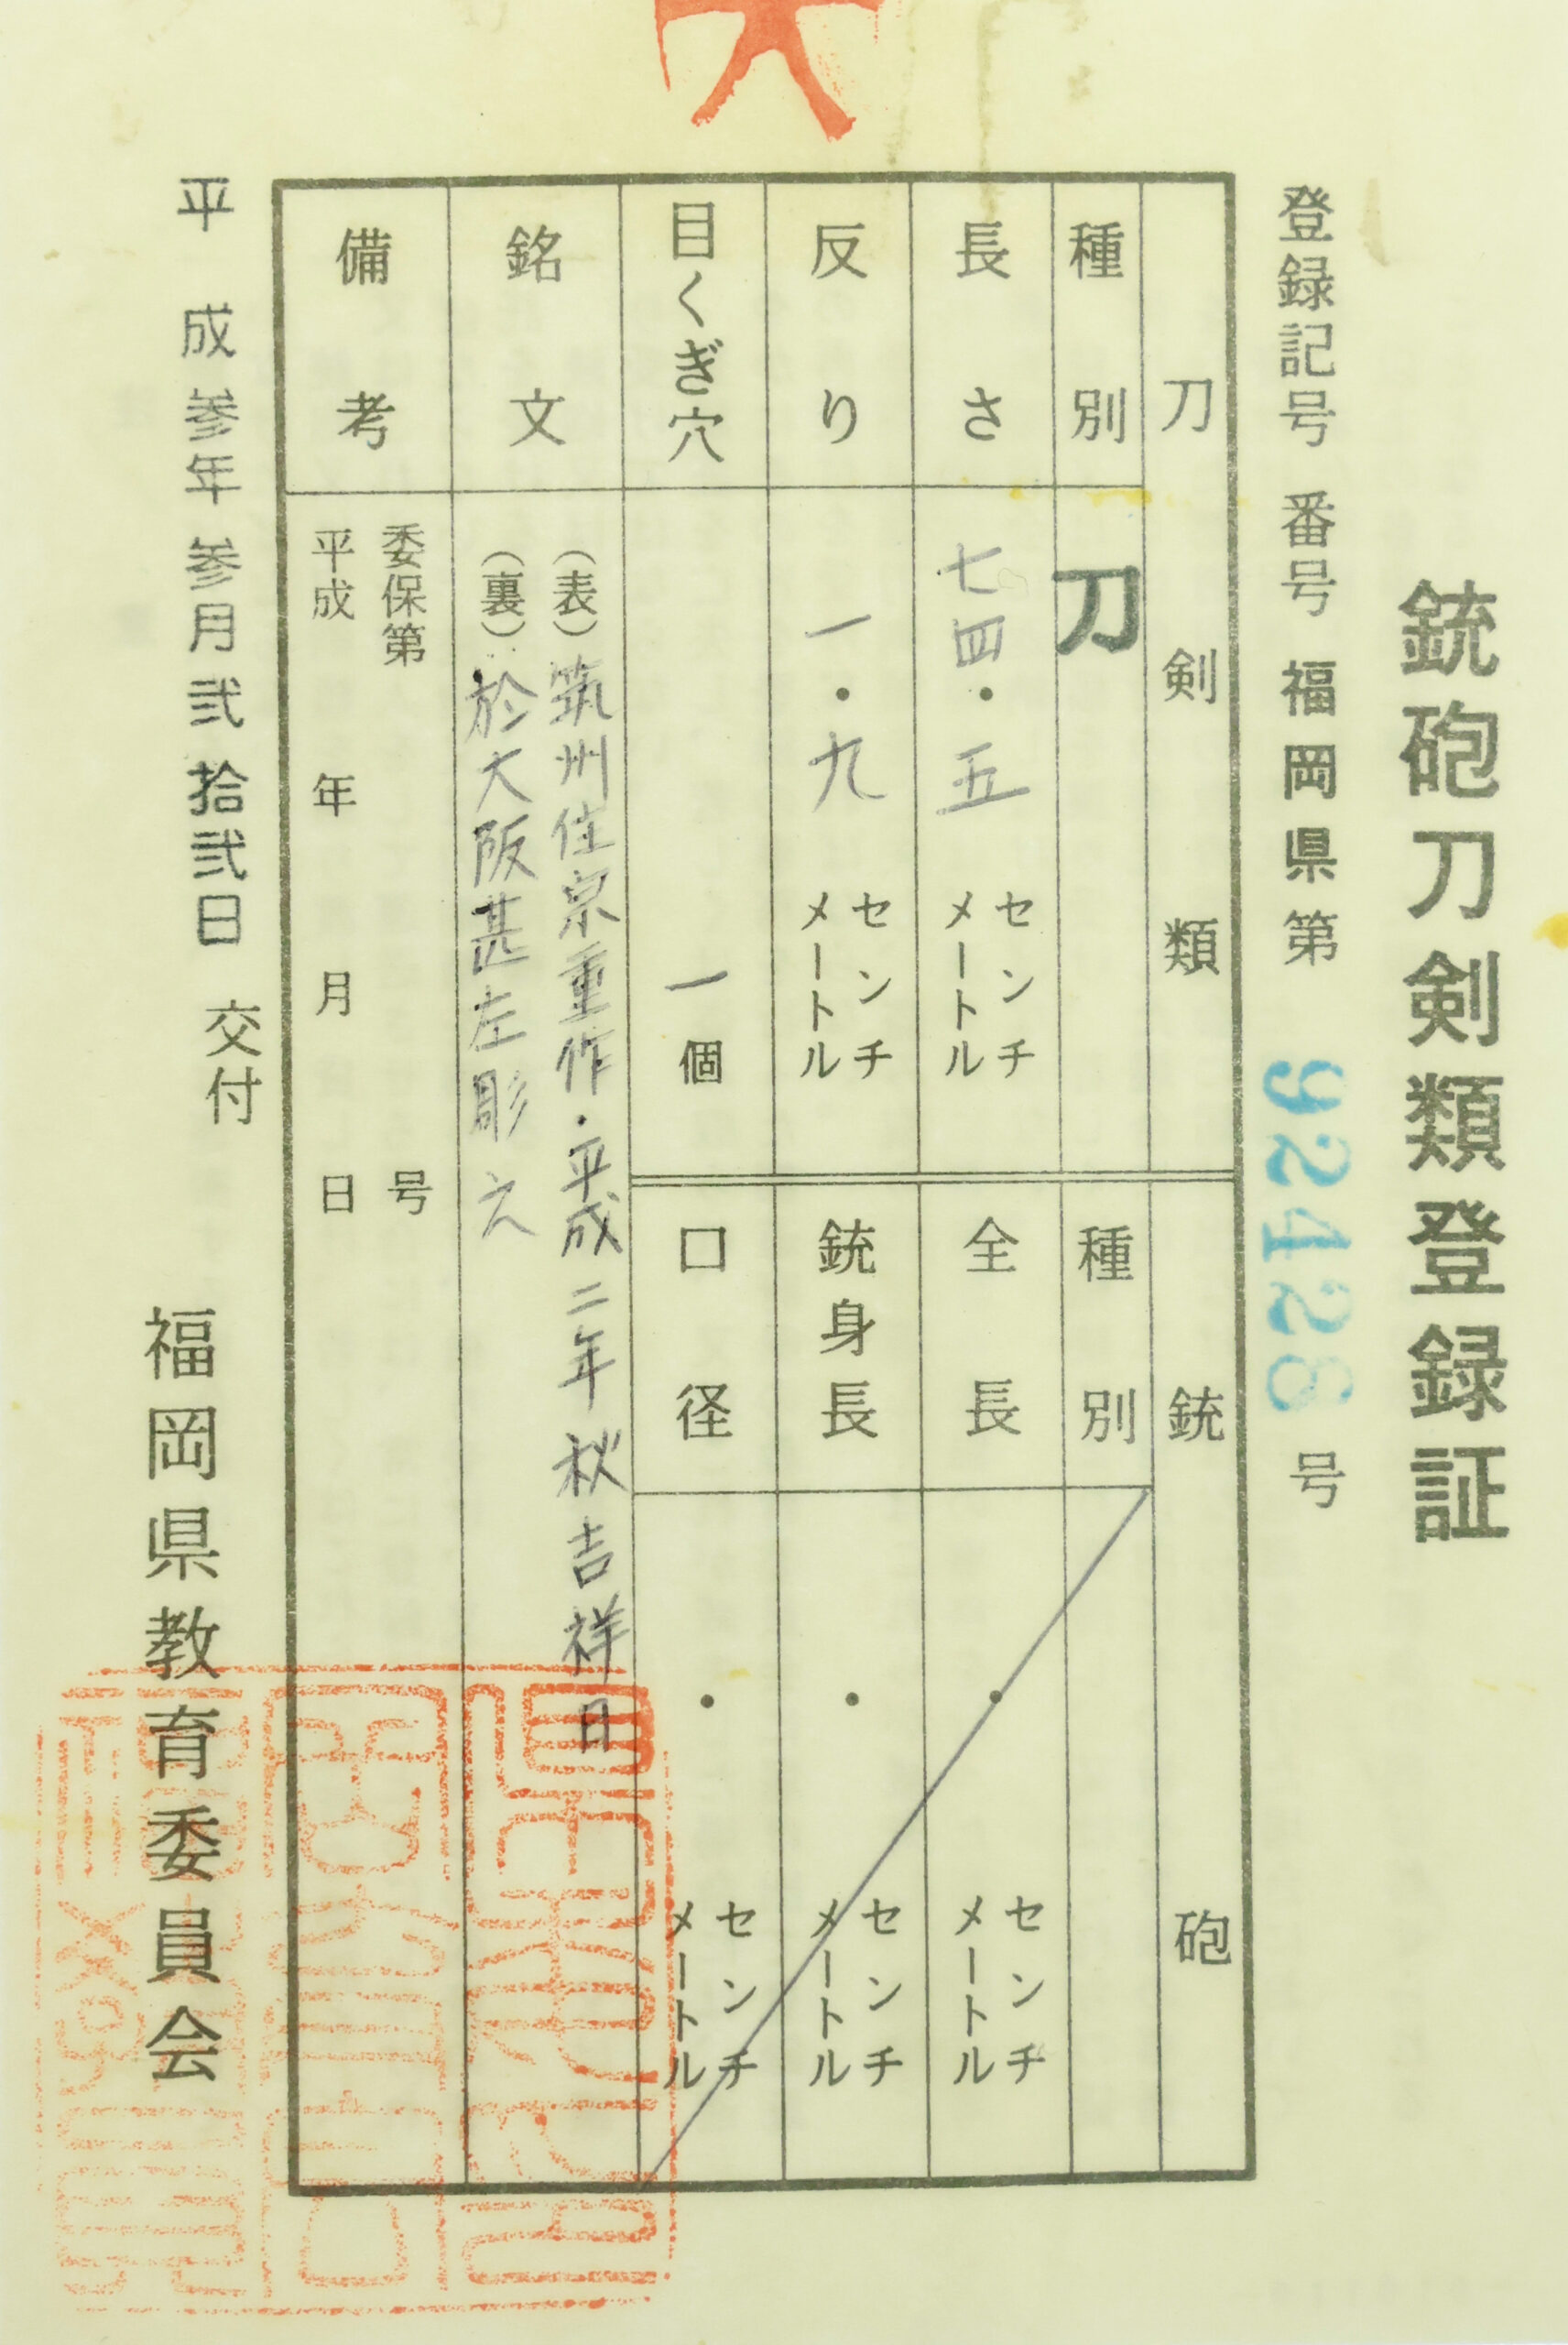 銃砲刀剣類登録証
登録記号番号 福岡県第 92428 号
刀剣類
種別 刀
長さ 七四・五 センチメートル
反り 一・九 センチメートル
目くぎ穴 一個
銘文 (表)筑州住宗重作・平成二年秋吉祥日
(裏)於大阪甚左彫之
備考 委保第 号
平成 年 月 日
銃砲
種別
全長 ・ センチメートル
銃身長 ・ センチメートル
口径 ・ センチメートル
平成参年参月弐拾弐日 交付
福岡県教育委員会